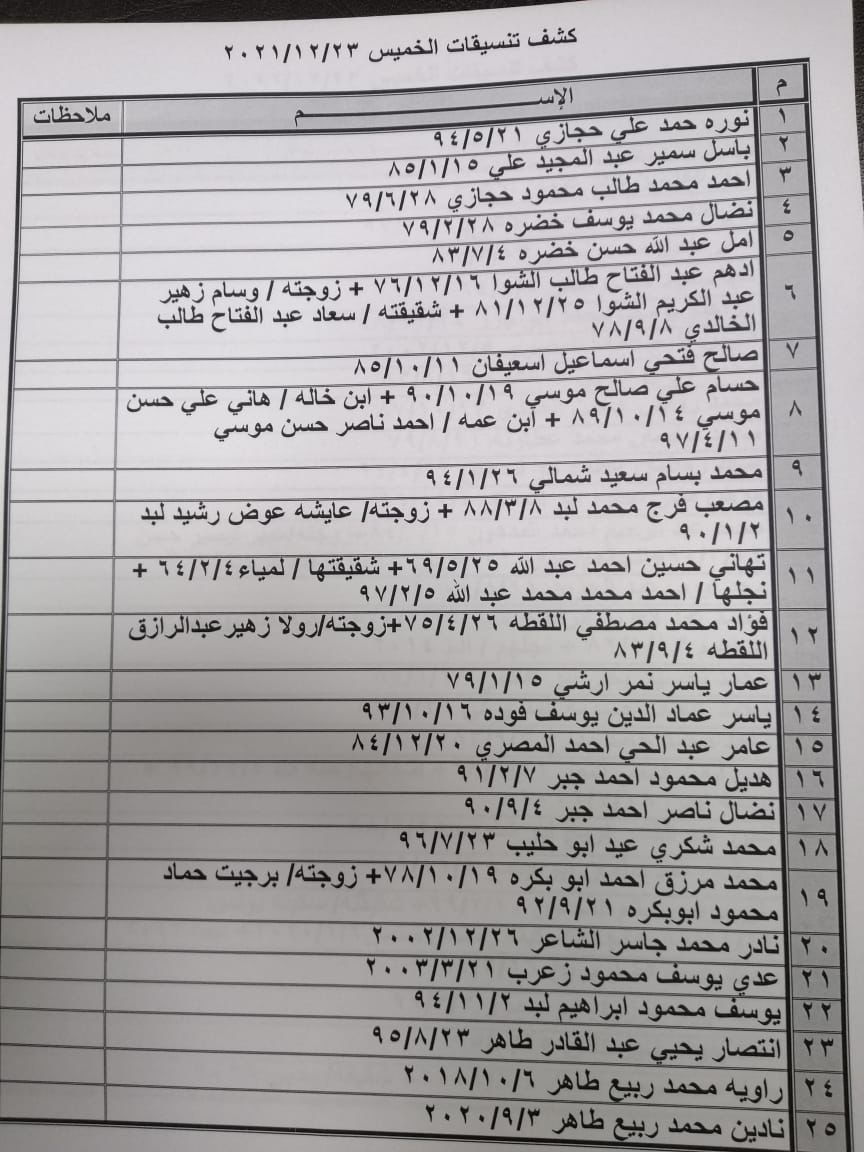 كشف تنسيقات الخميس ٢٠٢١/١٢/٢٣
م الإســـــــــم ملاحظات
١ نوره حمد علي حجازي ٩٤/٥/٢١
٢ باسل سمير عبد المجيد علي ٨٥/١/١٥
٣ احمد محمد طالب محمود حجازي ٧٩/٦/٢٨
٤ نضال محمد يوسف خضره ٧٩/٢/٢٨
٥ امل عبد الله حسن خضره ٨٣/٧/٤
٦ ادهم عبد الفتاح طالب الشوا ٧٦/١٢/١٦ + زوجته / وسام زهير
عبد الكريم الشوا ٨١/١٢/٢٥ + شقيقته / سعاد عبد الفتاح طالب
الخالدي ٧٨/٩/٨
٧ صالح فتحي اسماعيل اسعيفان ٨٥/١٠/١١
٨ حسام علي صالح موسي ٩٠/١٠/١٩ + ابن خاله / هاني علي حسن
موسي ٨٩/١٠/١٤ + ابن عمه / احمد ناصر حسن موسي
٩٧/٤/١١
٩ محمد بسام سعيد شمالي ٩٤/١/٢٦
١٠ مصعب فرج محمد لبد ٨٨/٣/٨ + زوجته/ عايشه عوض رشيد لبد
٩٠/١/٢
١١ تهاني حسين احمد عبد الله ٦٩/٥/٢٥+ شقيقتها / لمياء٦٤/٢/٤ +
نجلها / احمد محمد محمد عبد الله ٩٧/٢/٥
١٢ فؤاد محمد مصطفي اللقطه ٧٥/٤/٢٦+زوجته/رولا زهيرعبدالرازق
اللقطه ٨٣/٩/٤
١٣ عمار ياسر نمر ارشي ٧٩/١/١٥
١٤ ياسر عماد الدين يوسف فوده ٩٣/١٠/١٦
١٥ عامر عبد الحي احمد المصري ٨٤/١٢/٢٠
١٦ هديل محمود احمد جبر ٩١/٢/٧
١٧ نضال ناصر احمد جبر ٩٠/٩/٤
١٨ محمد شكري عيد ابو حليب ٩٦/٧/٢٣
١٩ محمد مرزق احمد ابو بكره ٧٨/١٠/١٩+ زوجته/ برجيت حماد
محمود ابوبكره ٩٢/٩/٢١
٢٠ نادر محمد جاسر الشاعر ٢٠٠٢/١٢/٢٦
٢١ عدي يوسف محمود زعرب ٢٠٠٣/٣/٢١
٢٢ يوسف محمود ابراهيم لبد ٩٤/١١/٢
٢٣ انتصار يحيي عبد القادر طاهر ٩٥/٨/٢٣
٢٤ راويه محمد ربيع طاهر ٢٠١٨/١٠/٦
٢٥ نادين محمد ربيع طاهر ٢٠٢٠/٩/٣